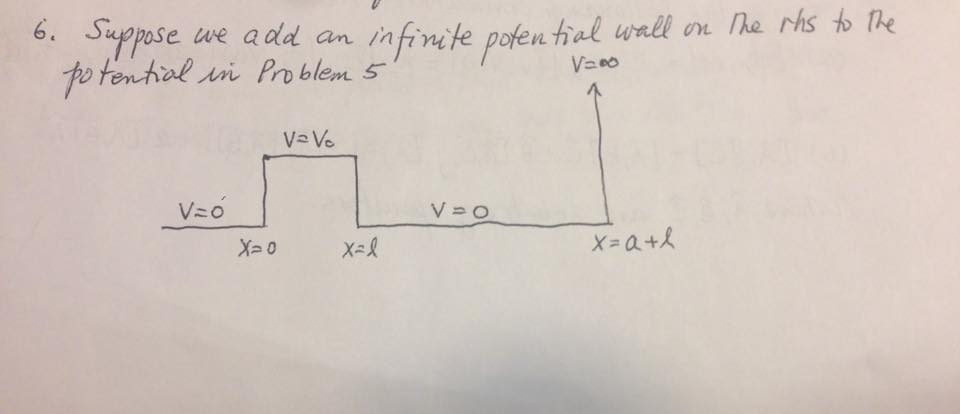 6. Suppose we add an infinite potential wall on the rhs to the
potential in Problem 5
V=∞
V=V₀
V=0
V=0
X=0
X=l
X=a+l